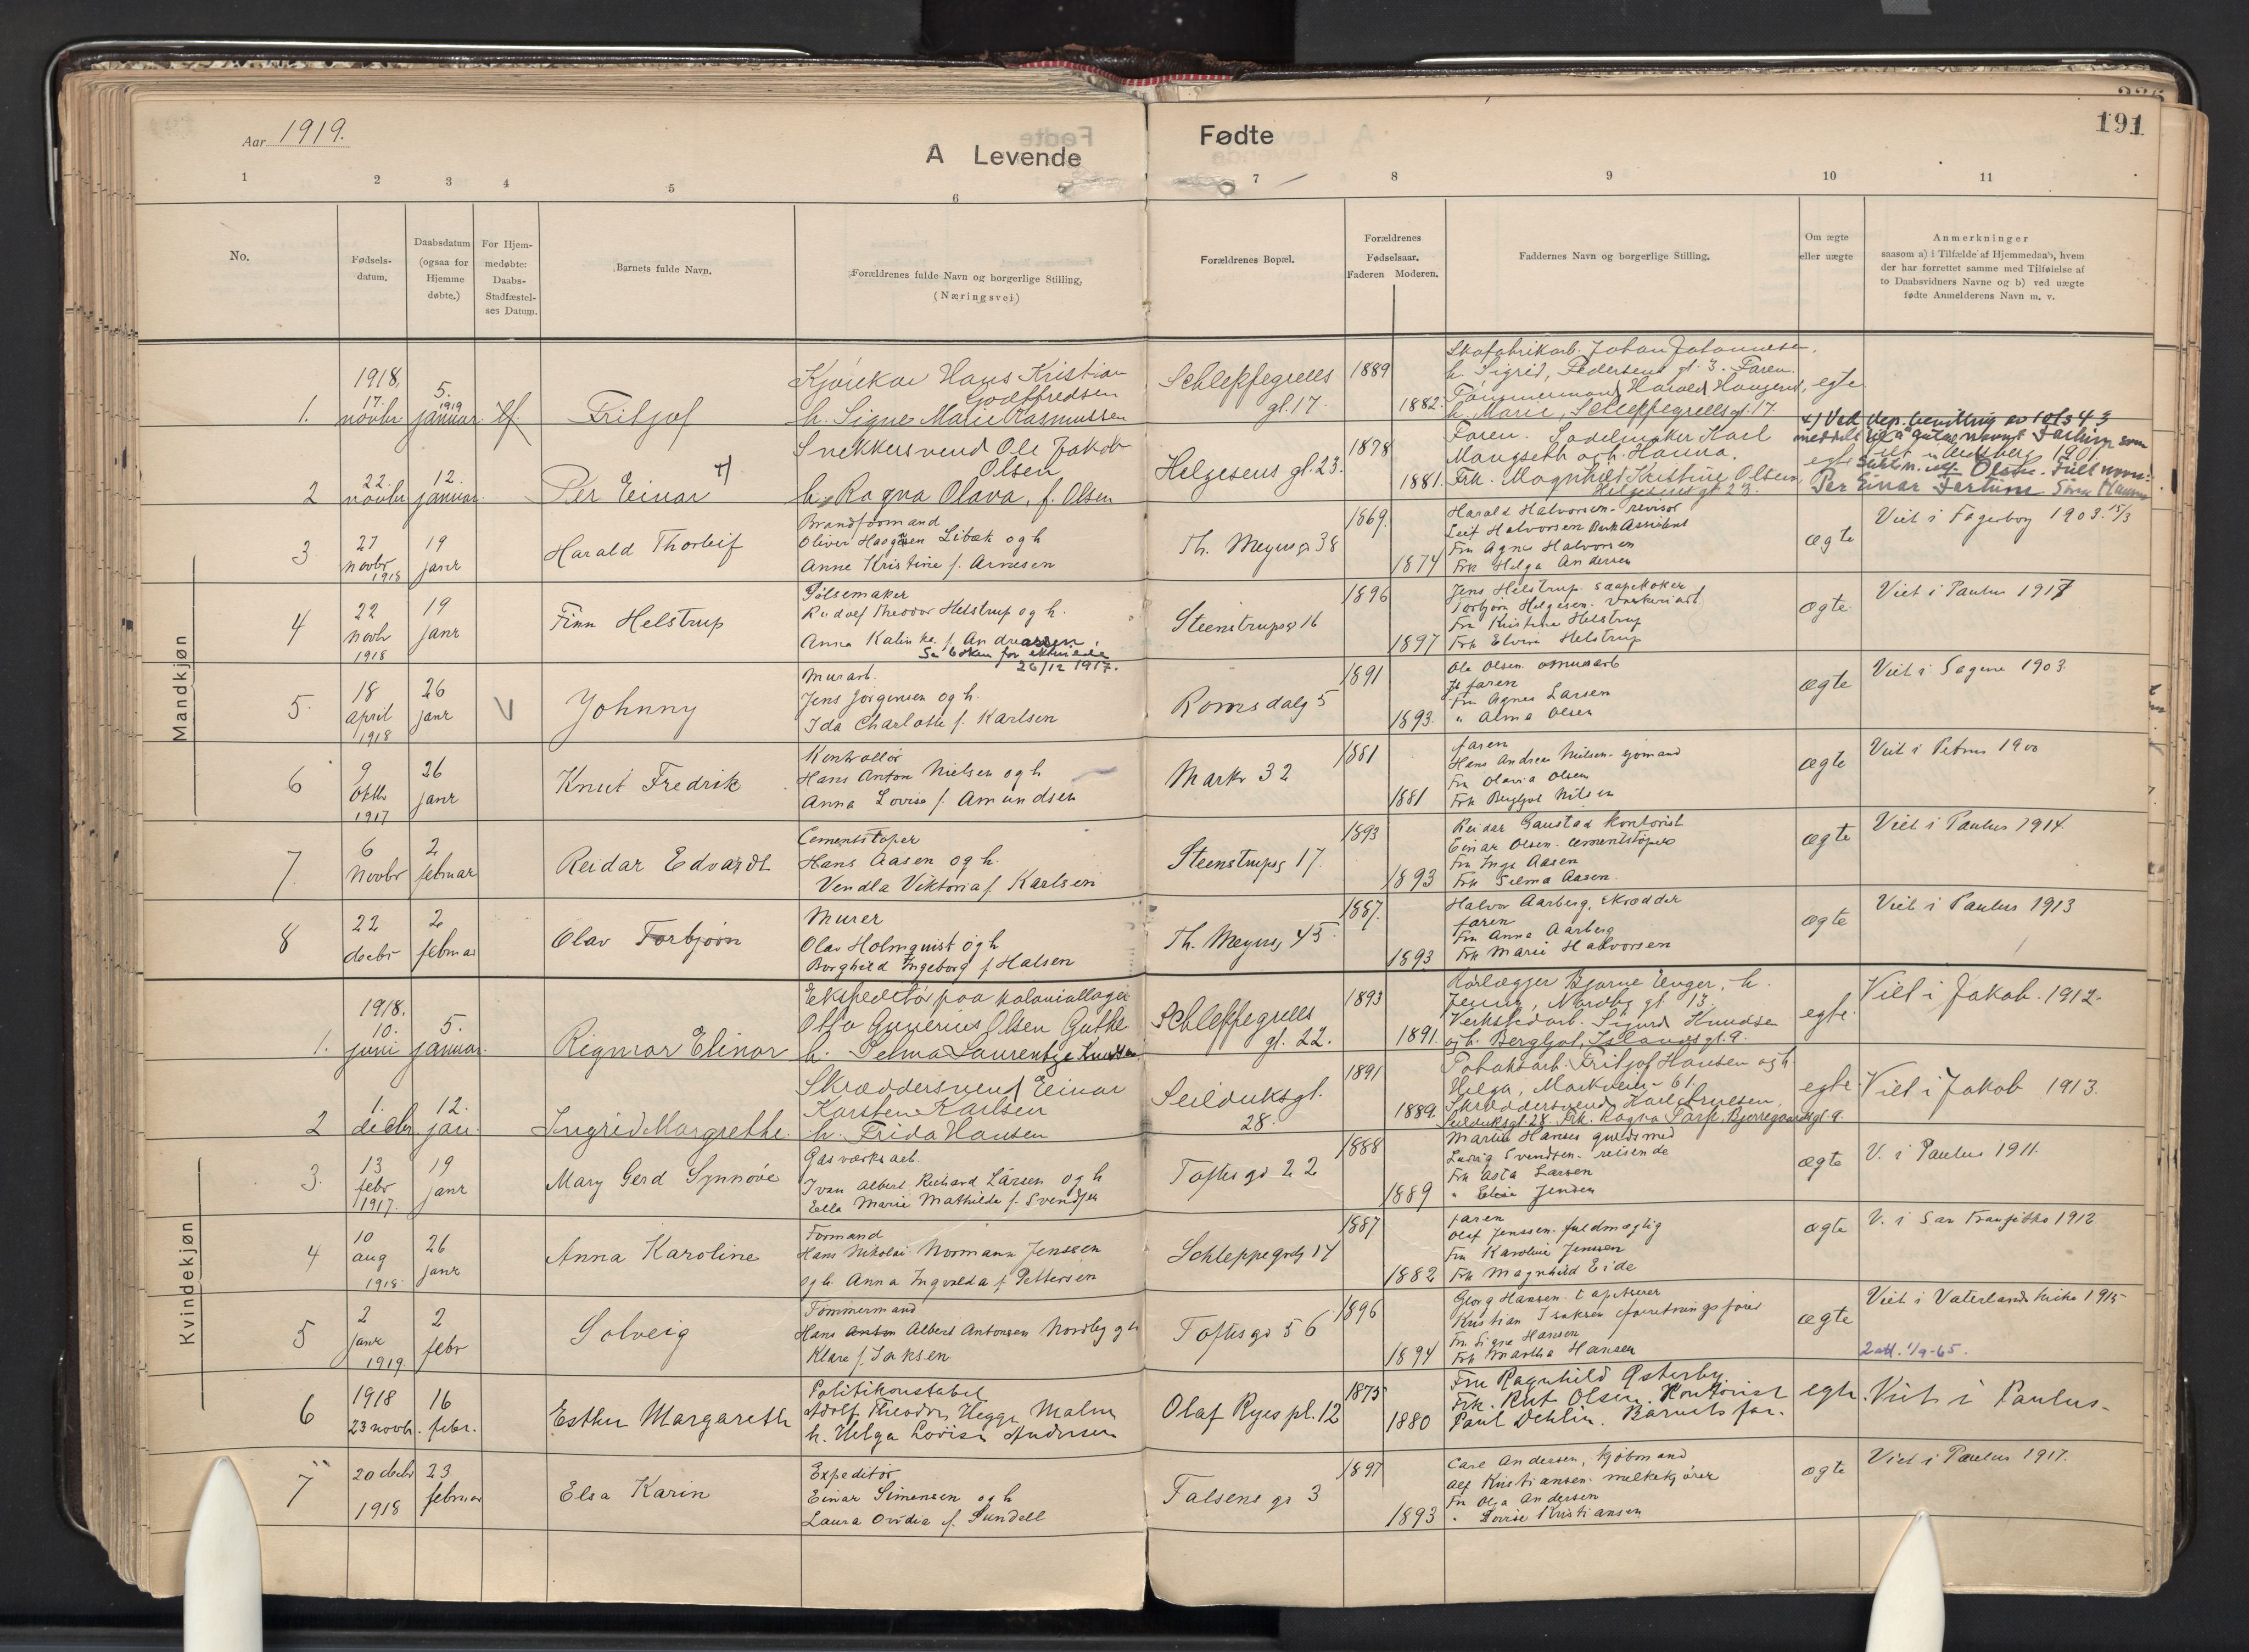 191
Aar 1919.
A Levende
Fødte
1 2 3 4 5 6 7 8 9 10 11
No.
Fødsels-
datum.
Daabsdatum
(ogsaa for
Hjemme
døbte.)
For Hjem-
medøbte:
Daabs-
Stadfæstel-
ses Datum.
Barnets fulde Navn.
Forældrenes fulde Navn og borgerlige Stilling,
(Næringsvei)
Forældrenes Bopæl.
Forældrenes
Fødselsaar.
Faderen Moderen.
Faddernes Navn og borgerlige Stilling.
Om ægte
eller uægte
Anmerkninger
saasom a) i Tilfælde af Hjemmedaab, hvem
der har forrettet samme med Tilføielse af
to Daabsvidners Navne og b) ved uægte
fødte Anmelderens Navn m. v.
Mandkjøn
1.
1918.
17.
novbr
5.
1919
januar.
Fritjof
Kjørekar Hans Kristian
Godtfredsen
h. Signe Marie Rasmussen
Schleppegrells
gt. 17.
1889
1882.
Skofabrikarb. Johan Johannesen,
h. Sigrid, Pedersens gt. 3. Faren.
Tømmermand Harald Haugerud,
h. Marie, Schleppegrellsgt. 17.
egte
2
22.
novbr
12.
januar.
Per Einar x)
Snekkersvend Ole Jakob
Olsen
h. Ragna Olava, f. Olsen
Helgesens gt. 23.
1878
1881.
Faren. Sadelmaker Karl
Mangseth og h. Hanna.
Frk. Magnhild Kristine Olsen,
Helgesens gt 23.
egte
x) Ved dep. bevilling av 10/5 43
meddelt til å anta navnet som
1901.
Olsen. Fullt navn:
Per Einar
3
27
novbr
1918
19
janr
Harald Thorleif
Brandformand
Oliver Libæk og h
Anne Kristine f. Arnesen
Th. Meyersg 38
1869.
1874
Harald Halvorsen - revisor
Leif Halvorsen Bank Assistent
Fru Agnes Halvorsen
Frk Helga Andersen
ægte
Viet i Fagerborg 1903. 15/3
4
22
Novbr
1918
19
janr
Finn Helstrup
Pølsemaker
Rudolf Theodor Helstrup og h.
Anna Katinka f. Andreassen.
Se boken for ektevede
26/12 1917.
Steenstrupsg 16
1896
1897
Jens Helstrup. saapekoker
Torbjørn Helgesen. verkeriarb.
Fru Kristine Helstrup
Frk Elvira Helstrup
ægte
Viet i Paulus 1917
5.
18
april
1918
26
janr
V
Johnny
Murarb.
Jens Jørgensen og h.
Ida Charlotte f. Karlsen
Romsdalg 5
1891
1893.
Ole Olsen murarb
faren
Fru Agnes Larsen
" Alma Olsen
ægte
Viet i Sagene 1903.
6
9
Oktb
1917
26
janr
Knut Fredrik
Kontrollør
Hans Anton Nielsen og h
Anna Lovise f. Amundsen
Markv 32
1881
1881
faren
Hans Andreas Nielsen - sjømand
Fru Olavia Olsen
Frk Bergljot Nilsen
ægte
Viet i Petrus 1900
7
6
Novbr
2
februar
Reidar Edvardt
Cementstøper
Hans Aasen og h.
Vendla Viktoria f. Karlsen
Steenstrupsg 17.
1893
1893
Reidar Gaustad kontorist
Einar Olsen. cementstøper
Fru Inga Aasen
Frk Selma Aasen.
ægte
Viet i Paulus 1914.
8
22
decbr
2
februar
Olav Torbjørn
Murer
Olav Holmquist og h
Borghild Ingeborg f Halsen
Th. Meyersg 45.
1887.
1893
Halvor Aarberg, skrædder
faren
Fru Anna Aarberg
Frk Marie Halvorsen
ægte
Viet i Paulus 1913
Kvindekjøn
1.
1918.
10.
juni
5.
januar.
Rigmor Elinor
Ekspeditør paa koloniallager
Otto Gunerius Olsen Guthe
h. Selma Laurentze Knudsen
Schleppegrells
gt. 22.
1893
1891.
Rørlægger Bjarne Unger, h.
Jenny, Nordby gt 13.
Verkstedarb. Sigurd Knudsen
og h. Bergljot, Islandsgt. 9.
egte.
Viet i Jakob. 1912.
2
1.
decbr.
12.
jan.
Ingrid Margrethe.
Skræddersvend Einar
Karsten Karlsen
h. Frida Hansen
Seilduksgt.
28.
1891
1889.
Tobaksarb. Fritjof Hansen og h
Helga, Markveien 61.
Skræddersvend Karl Arnesen,
Seilduksgt. 28. Frk. Ragna Bjerregaardsgt. 9.
egte.
Viet i Jakob 1913.
3.
13
febr
1917.
19
janr
Mary Gerd Synnøve
Gasværksarb.
Ivan Albert Richard Larsen og h
Ella Marie Mathilde f. Svendsen
Toftesgt 22
1888
1889
Martin Hansen guldsmed
Ludvig Svendsen - reisende
Frk Asta Larsen
" Elise Jensen
ægte
V. i Paulus 1911.
4
10
aug
1918
26
janr
Anna Karoline
Formand
Hans Nikolai Normann Jenssen
og h. Anna Ingvalda f. Pettersen
Schleppegrelsg 14
1887
1882
Faren
Olaf Jenssen. fuldmægtig
Fru Karoline Jenssen
Frk Magnhild Eide
ægte
V. i San Fransisko 1912
5
2
janr
1919
2
febr
Solveig
Tømmermand
Hans Anton Albert Antonsen Nordby og h
Klara f. Isaksen
Toftesgt 56
1896
1894
Georg Hansen. tapetserer
Kristian Isaksen forretningsfører
Fru Signe Hansen
Frk Martha Hansen
ægte
Viet i Vaterlands kirke 1915
2 att. 1/9-65.
6
1918
23 novbr.
16
febr.
Esther Margareth
Politikonstabel
Adolf Theodor Hegge Malm
h. Helga Lovise Andersen
Olaf Ryes pl. 12
1875
1880
Fru Ragnhild Østerby.
Frk. Rut Olsen. Kontorist
Paul Dehlin. Barnets far.
egte.
Viet i Paulus.
7
20 decbr
1918
23
februar
Elsa Karin
Expeditør
Einar Simensen og h
Laura Ovidia f. Sundell
Falsens gt 3
1897
1893
Carl Andersen, kjøbmand
Alf Kristiansen. melkekjører
Fru Olga Andersen
" Lovise Kristiansen
ægte
Viet i Paulus 1917.